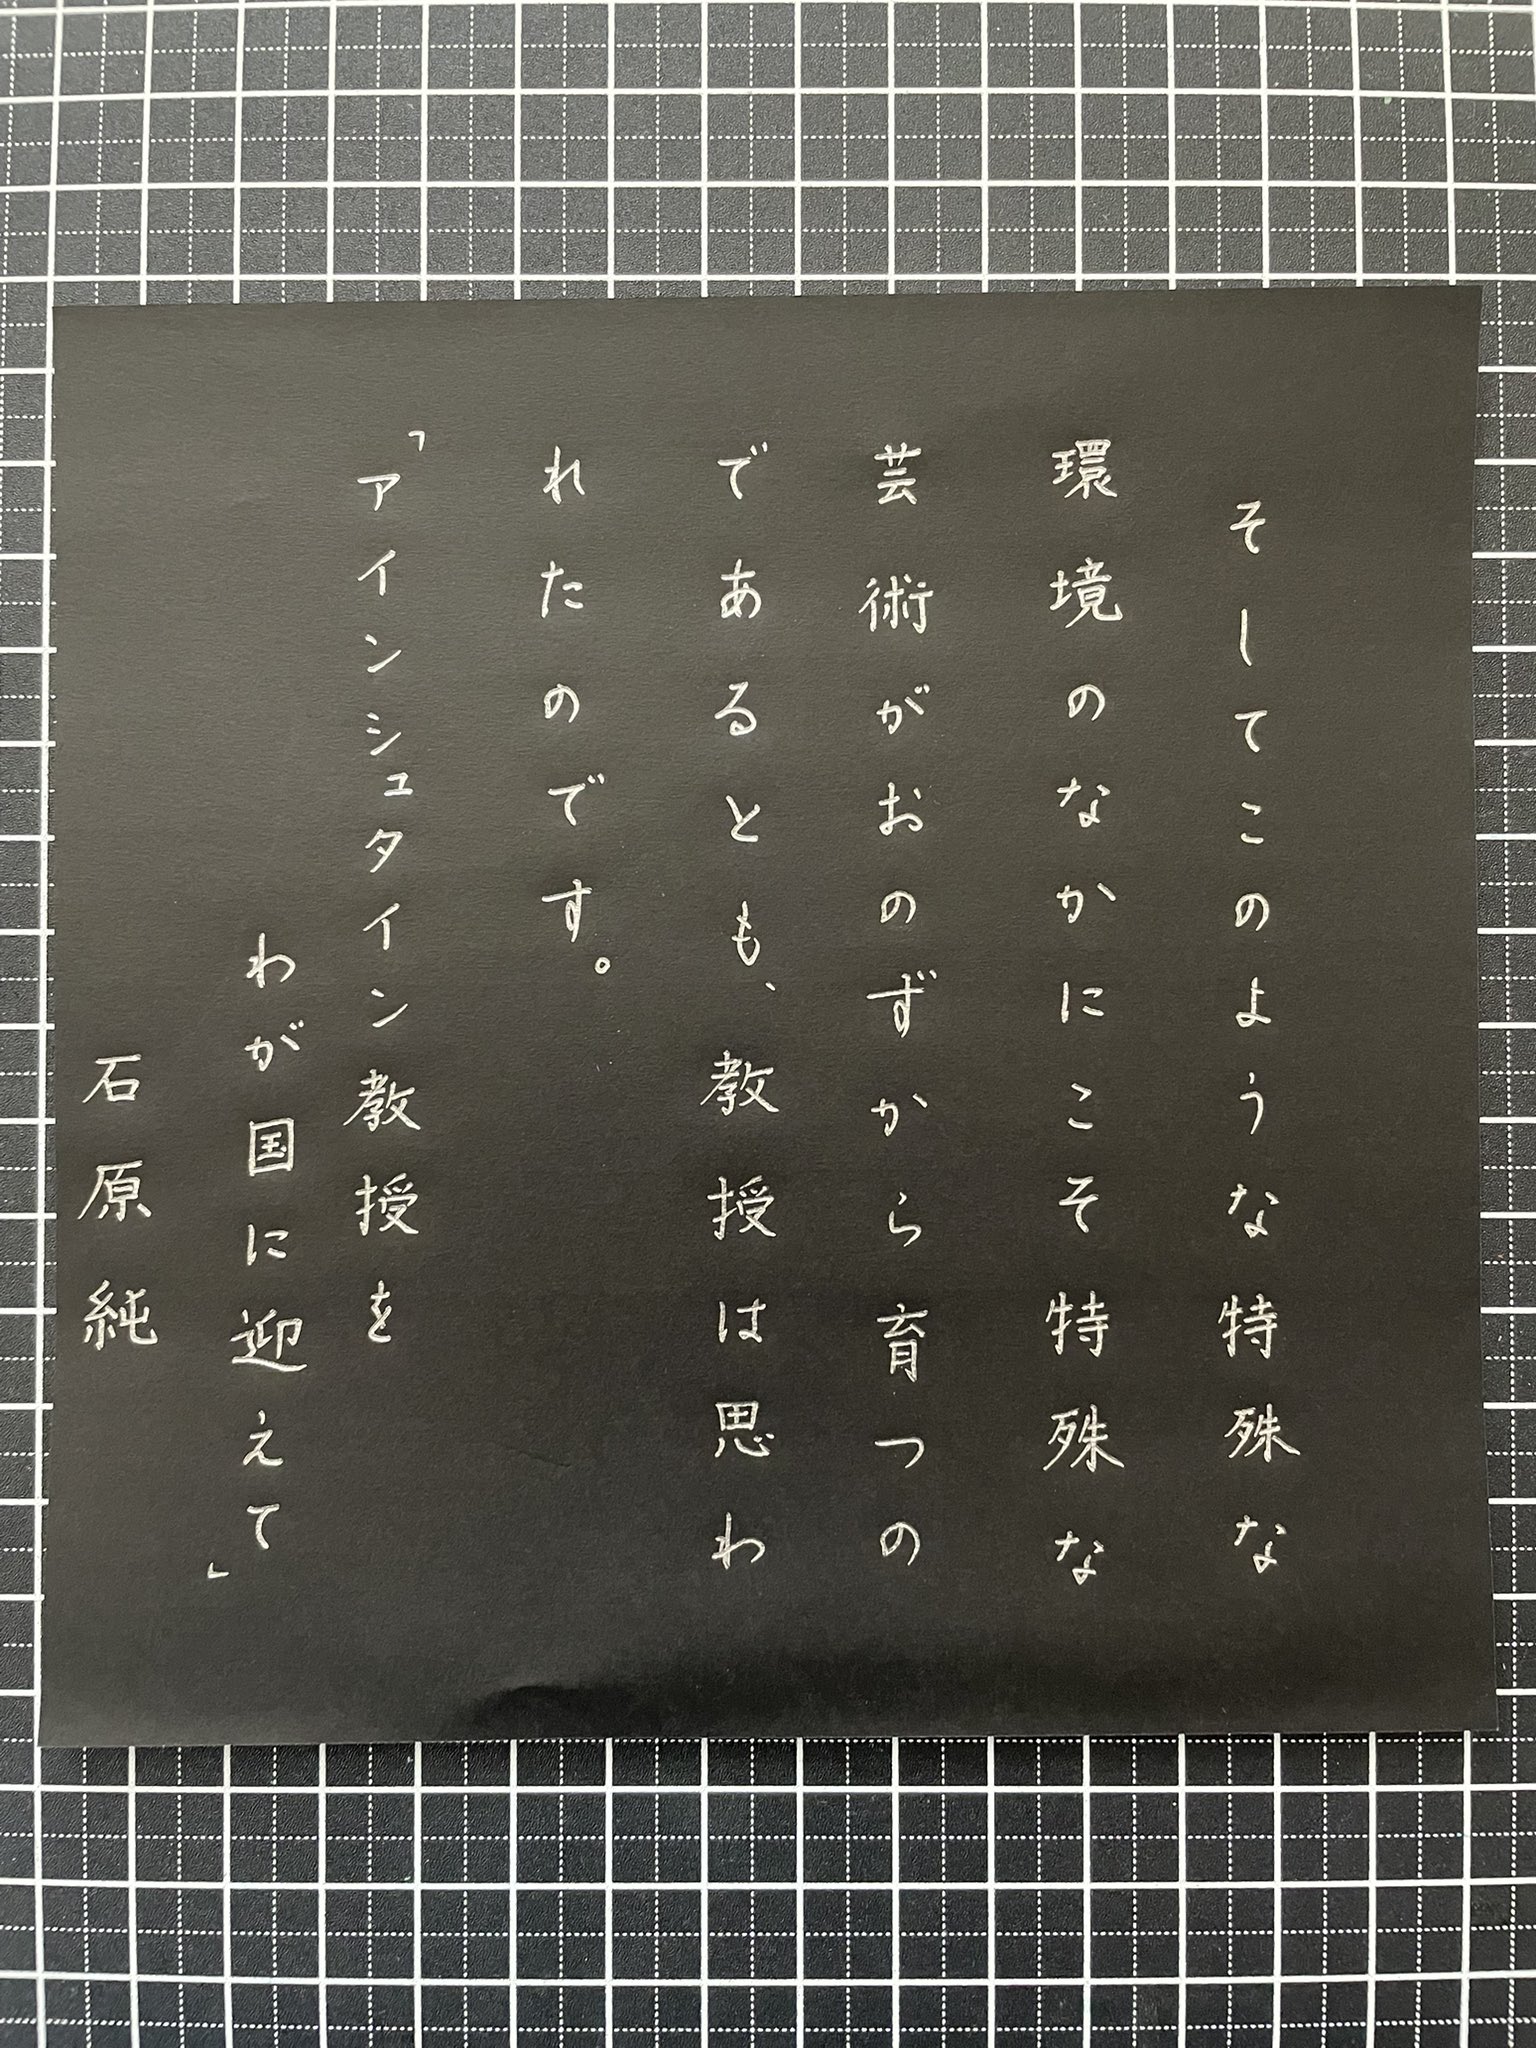 そしてこのような特殊な
環境のなかにこそ特殊な
芸術がおのずから育つの
であるとも、教授は思わ
れたのです。
「アインシュタイン教授を
わが国に迎えて」
石原純